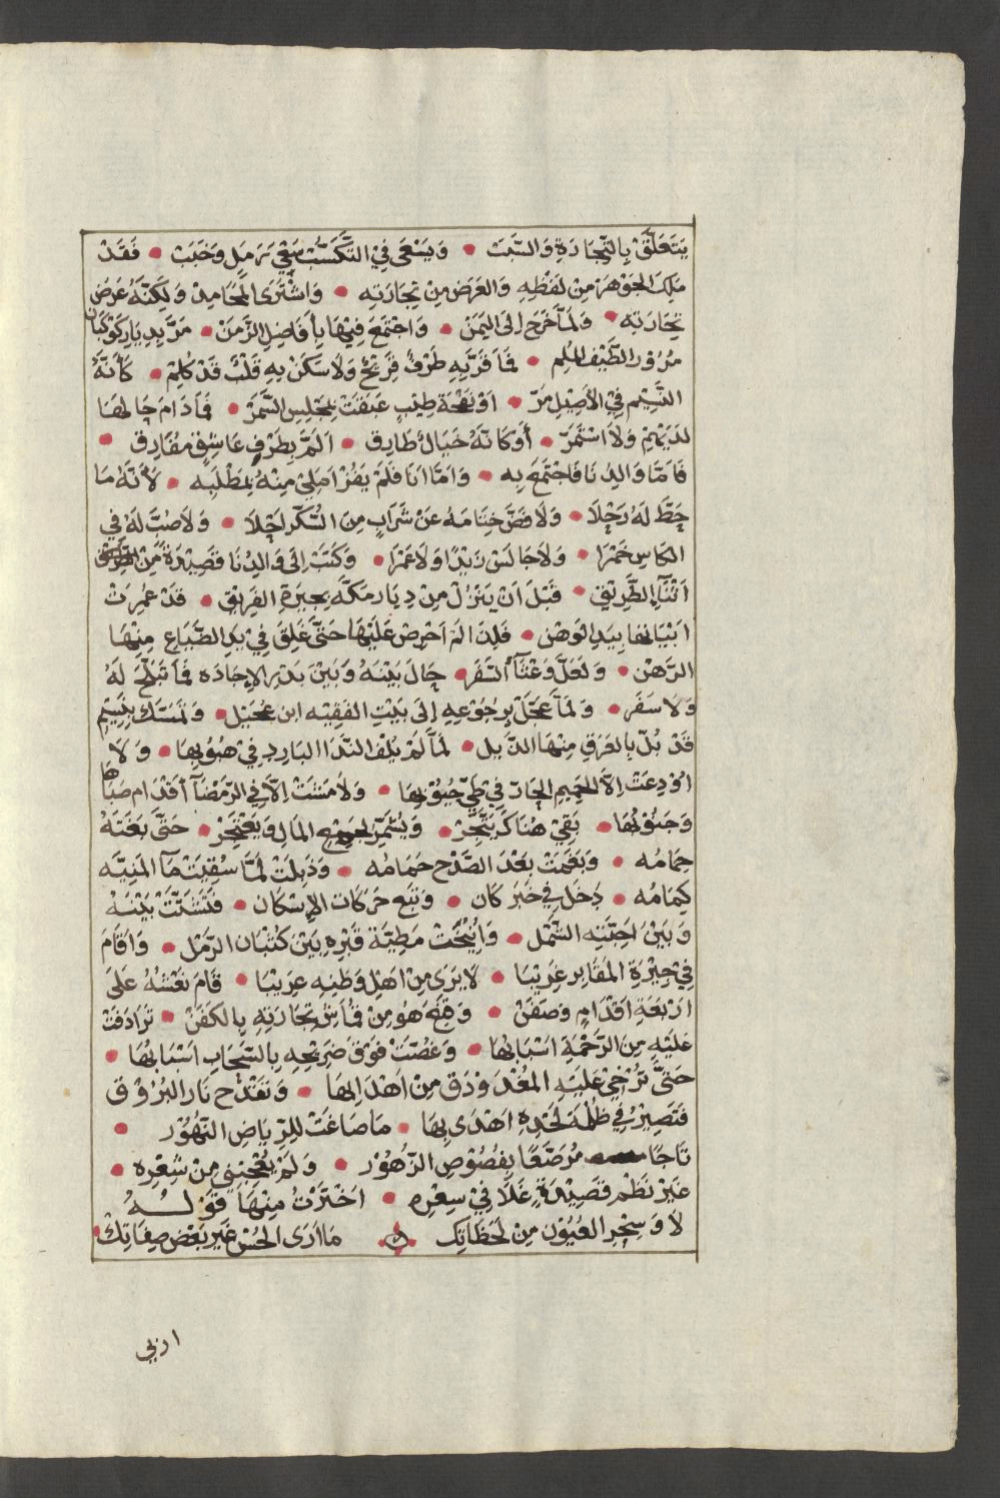 يَتَعَلَّقْ بِالتِّجَارَةِ وَالسَّبَبْ • وَيَسْعَى فِي التَّكَسُّبْ سَعْيَ رَمَلٍ وَخَبَبْ • فَقَدْ
مَلَكَ الجَوْهَرَ مِنْ لَفْظِهِ وَالعَرَضَ مِنْ تِجَارَتِهِ • وَاشْتَرَى المَحَامِدَ وَلَكِنَّهُ عَرَضَ
تِجَارَتِهِ • وَلَمَّا خَرَجَ اِلَى اليَمَنْ • وَاجْتَمَعَ فِيْهَا بِأَفَاضِلِ الزَّمَنْ • مَرَّ بِدِيَارِ كَوْكَبَانْ
مُرُوْرَ الطَّيْفِ المُلِمْ • فَمَا قَرَّ بِهِ طَرْفُ قَرِيْحٍ وَلَا سَكَنَ بِهِ قَلْبٌ قَدْ كُلِمْ • كَأَنَّهُ
النَّسِيْمُ فِي الأَصِيْلِ مَرّ • اَوْ نَفْحَةُ طِيْبٍ عَبَقَتْ بِمَجْلِسِ السَّمَرْ • فَمَا دَامَ حَالُهَا
لِلنَّدِيْمِ وَلَا اسْتَمَرّ • أَوْ كَانَّهُ خَيَالٌ طَارِقْ • اَلَمَّ بِطَرْفٍ عَاشِقٍ مُفَارِقْ •
فَامَّا وَالِدُنَا فَاجْتَمَعَ بِهِ • وَامَّا اَنَا فَلَمْ يَفُزْ اَمَلِيْ مِنْهُ بِمَطْلَبِهِ • لِأَنَّهُ مَا
حَطَّ لَهُ رَحْلًا • وَلَا فَضَّ خِتَامَهُ عَنْ شَرَابٍ مِنَ السُّكَّرِ اَحْلَا • وَلَا صُبَّ لَهُ فِي
الكَاسِ خَمْرَا • وَلَا جَالَسَ زَيْدًا وَلَا عَمْرَا • وَكَتَبَ اِلَى وَالِدِنَا قَصِيْدَةً مِنْ
اَثْنَاءِ الطَّرِيْقْ • قَبْلَ اَنْ يَنْزِلَ مِنْ دِيَارِ مَكَّةَ بِجِيْرَةِ الفَرِيْقْ • قَدْ عُمِرَتْ
اَبْيَاتُهَا بِيَدِ الوَهْنْ • فَلِذَا لَمْ اَحْرِصْ عَلَيْهَا حَتَّى غَلِقَ فِيْ يَدِ الضَّيَاعِ مِنْهَا
الرَّهْنْ • وَلَعَلَّ وَعْثَآءَ السَّفَرْ • حَالَ بَيْنَهُ وَبَيْنَ بَدْرِ الإِجَادَه فَمَا تَبَلَّجَ لَهُ
وَلَا سَفَرْ • وَلَمَّا عَجَّلَ بِرُجُوْعِهِ اِلَى بَيْتِ الفَقِيْهِ ابن عُجَيْلْ • وَتَمَسَّكَ بِنَسِيْمٍ
قَدْ بُلَّ بِالعَرَقِ مِنْهَا الذَّيْل • لَمَّا لَمْ يَلْفَ النَّدَا البَارِدِ فِيْ هُبُوْبِهَا • وَلَا
اُوْدِعَتْ اِلَّا الحَمِيْمَ الحَارّ فِيْ طَيِّ جُيُوْبِهَا • وَلَا مَشَتْ اِلَّا فِي الرَّمْضَآ أَقْدَامُ صَبَاهَا
وَجَنُوْبُهَا • بَقِيَ هُنَاكَ يَتَّجِرْ • وَيُثَمِّرُ لِجَمْعِ المَالِ وَيَفْتَخِرْ • حَتَّى بَغَتَهُ
حِمَامُه • وَبَغَمَتْ بَعْدَ الصَّدْحِ حَمَامُه • وَذَبُلَتْ لَمَّا سُقِيَتْ مَآ المَنِيَّه
كِمَامُه • دَخَلَ فِيْ خَبَرِ كَان • وَتَبِعَ حَرَكَاتِ الإِسْكَان • فَتَشَتَّتَ بَيْنَهُ
وَبَيْنَ اَحِبَّتِهِ الشَّمْل • وَاُنِيْخَتْ مَطِيَّةُ قَبْرِهِ بَيْنَ كُثْبَانِ الرَّمْل • وَاَقَامَ
فِيْ جِيْرَةِ المَقَابِرِ غَرِيْبَا • لَا يَرَى مِنْ اَهْلِ وَطَنِهِ عَرِيْبَا • قَامَ نَعْشُهُ عَلَى
اَرْبَعَةِ اَقْدَامٍ وَصَفَنْ • وَقَنِعَ هُوَ مِنْ قُمَاشِ تِجَارَتِهِ بِالكَفَنْ • تَرَادَفَتْ
عَلَيْهِ مِنَ الرَّحْمَةِ اَسْبَابُهَا • وَغَصَّتْ فَوْقَ ضَرِيْحِهِ بِالسَّحَابِ اَسْبَابُهَا •
حَتَّى تُرْخِيْ عَلَيْهِ المُغْدَوْدَقَ مِنْ اَهْدَابِهَا • وَتَقْدَحَ نَارَ البُرُوْقِ
فَتَصِيْرُ فِيْ ظُلْمَةِ لَحْدِهِ اَهْدَى بِهَا • مَا صَاغَتْ لِلرِّيَاضِ النُّهُوْر •
تَاجًا مُرَصَّعًا بِفُصُوْصِ الزُّهُوْر • وَلَمْ يُعْجِبْنِيْ مِنْ شِعْرِه •
غَيْرُ نَظْمِ قَصِيْدَةٍ غَلَا فِيْ سِعْرِه • اَخْتَرْتُ مِنْهَا قَوْلَــهُ
لَا وَسِحْرِ العُيُوْنِ مِنْ لَحَظَاتِك مَا اَرَى الحُسْنَ غَيْرَ بَعْضِ صِفَاتِكْ •
اربي